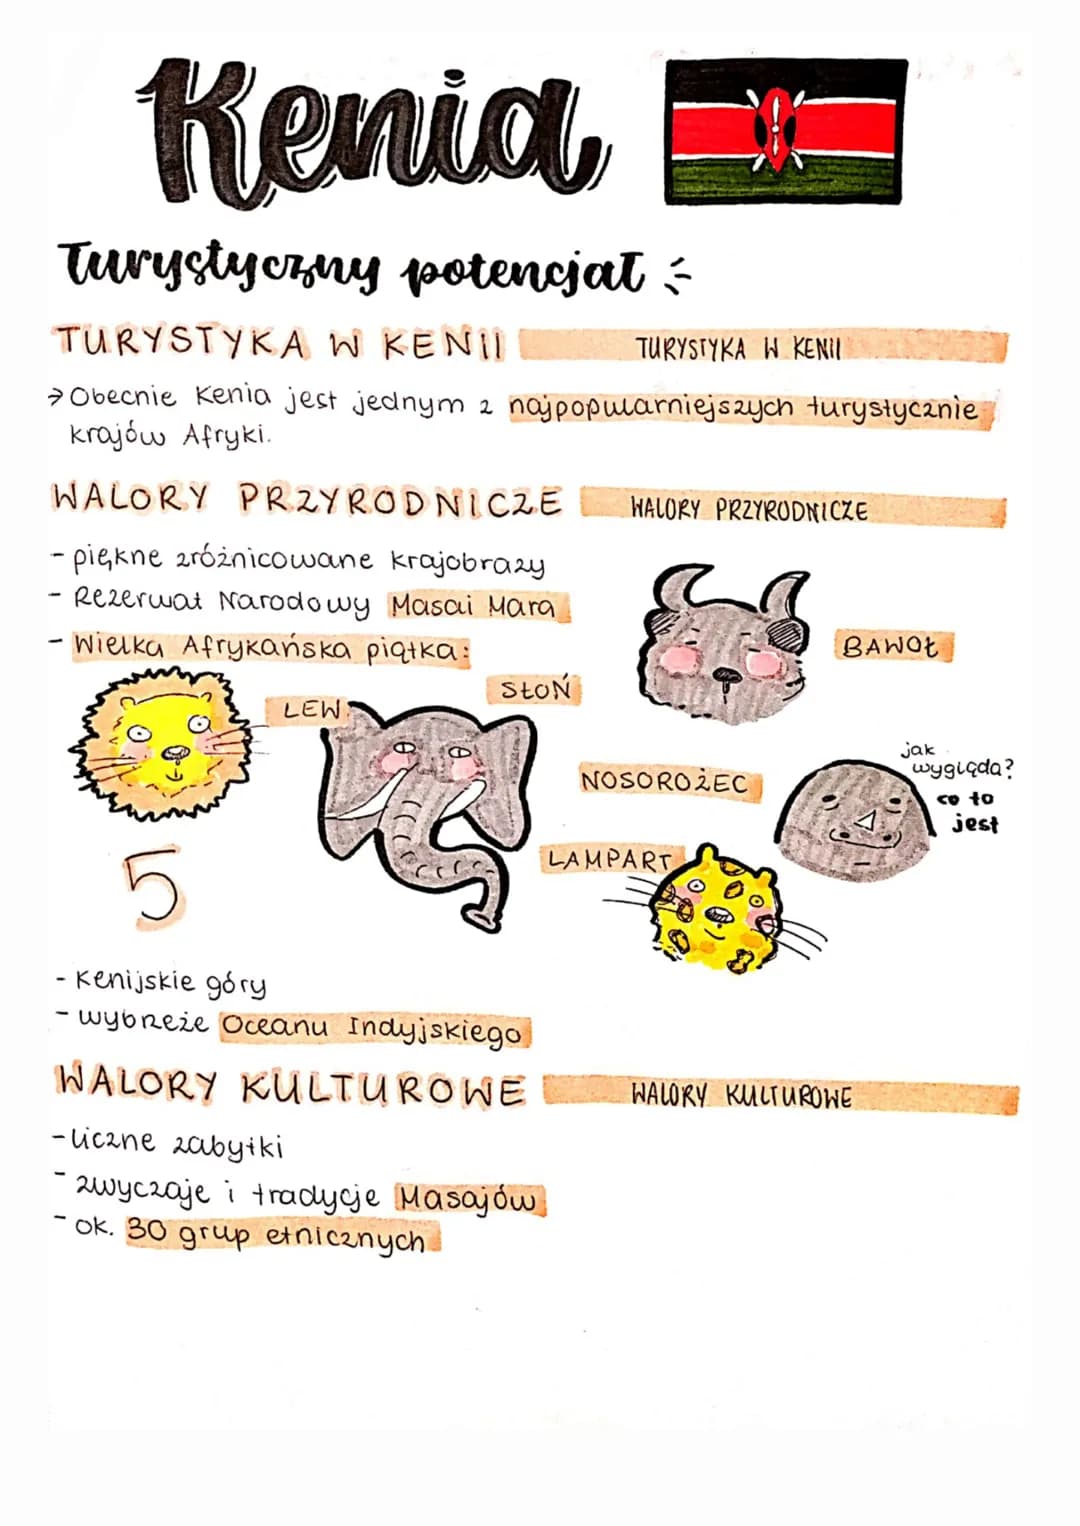 Kenia
Turystyczny potencjał
TURYSTYKA W KENII TURYSTYKA W KENII
→ Obecnie Kenia jest jednym z najpopularniejszych turystycznie
krajów Afryki.
WALORY PRZYRODNICZE WALORY PRZYRODNICZE
- piękne zróżnicowane krajobrazy
- Rezerwat Narodowy Masai Mara
- Wielka Afrykańska piątka:
BAWOŁ
SŁOŃ
LEW
jak
wygląda?
NOSOROŻEC
co to
jest
LAMPART
5
- Kenijskie góry
- wybrzeże Oceanu Indyjskiego
WALORY KULTUROWE WALORY KULTUROWE
- liczne zabytki
- zwyczaje i tradycje Masajów
- ok. 30 grup etnicznych